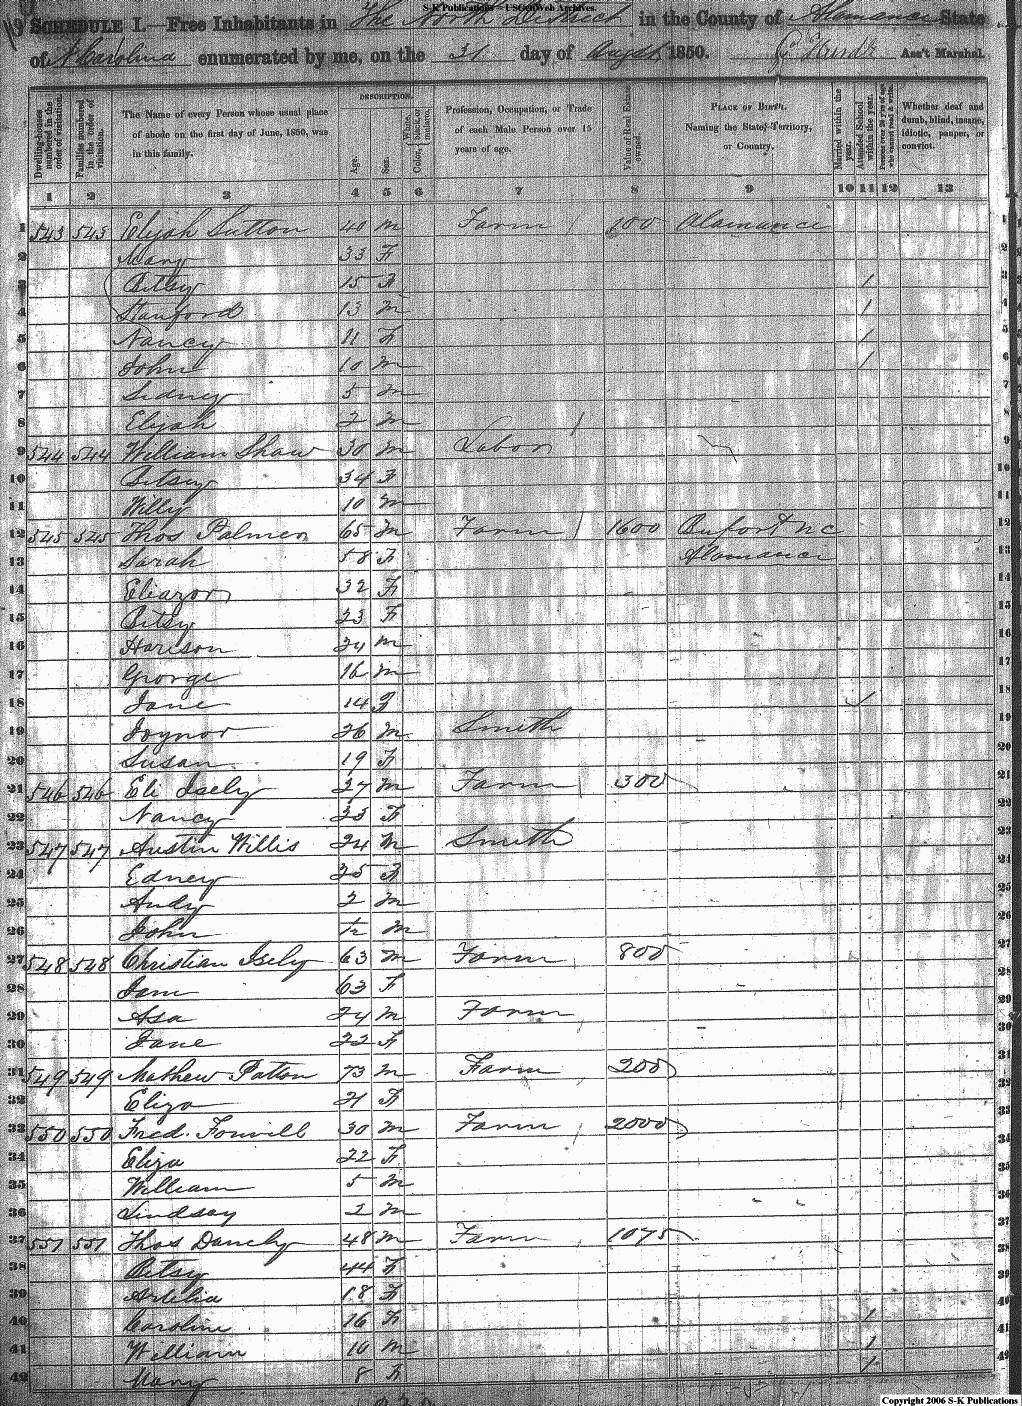 S-K Publications - USGenWeb Archives.
SCHEDULE I.—Free Inhabitants in The North District in the County of Alamance State
of N Carolina enumerated by me, on the 31 day of August 1850. Ass't Marshal.
DESCRIPTION.
Dwelling-houses numbered in the order of visitation.
Families numbered in the order of visitation.
The Name of every Person whose usual place of abode on the first day of June, 1850, was in this family.
Age.
Sex.
Color, White, black, or mulatto.
Profession, Occupation, or Trade of each Male Person over 15 years of age.
Value of Real Estate owned.
PLACE OF BIRTH. Naming the State, Territory, or Country.
Married within the year.
Attended School within the year.
Persons over 20 years of age who cannot read & write.
Whether deaf and dumb, blind, insane, idiotic, pauper, or convict.
1 2 3 4 5 6 7 8 9 10 11 12 13
1 543 543 Elijah Sutton 40 m Farm 100 Alamance 1
2 Mary 33 F 2
3 Bitsy 15 F 1 3
4 Stanford 13 m 1 4
5 Nancy 11 F 1 5
6 John 10 m 1 6
7 Sidney 5 m 7
8 Elijah 2 m 8
9 544 544 William Shaw 30 m Labor 9
10 Bitsy 34 F 10
11 Willy 10 m 11
12 545 545 Thos Palmer 65 m Farm 1600 Bufort N C 12
13 Sarah 58 F Alamance 13
14 Eleazor 32 F 14
15 Bitsy 23 F 15
16 Harison 24 m 16
17 George 16 m 17
18 Jane 14 F 18
19 Joynor 26 m Smith 19
20 Susan 19 F 20
21 546 546 Eli Isely 27 m Farm 300 21
22 Nancy 23 F 22
23 547 547 Austin Willis 24 m Smith 23
24 Edney 25 F 24
25 Andy 2 m 25
26 John m 26
27 548 548 Christian Isely 63 m Farm 800 27
28 63 F 28
29 Asa 24 m Farm 29
30 Jane 22 F 30
31 549 549 Mathew Patton 73 m Farm 200 31
32 Eliza 21 F 32
33 550 550 Fred. Fowell 30 m Farm 2000 33
34 Eliza 22 F 34
35 William 5 m 35
36 Lindsay 2 m 36
37 551 551 Thos Danely 48 m Farm 1075 37
38 Bitsy 44 F 38
39 Artelia 18 F 39
40 Caroline 16 F 1 40
41 William 10 m 1 41
42 Mary 8 F 1 42
Copyright 2006 S-K Publications